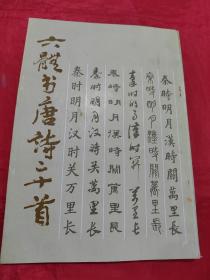 秦時明月漢時關萬里長
秦時明月漢時關萬里長
秦时明月汉时关万里长
秦時明月漢時關萬里長
秦時明月漢時關萬里長
秦时明月汉时关万里长
六體书唐詩三十首